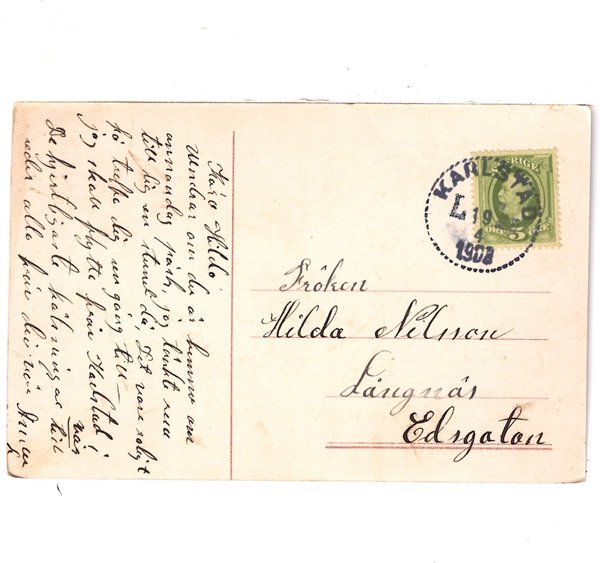 Kära Hilda
Undrar om du är hemma om
annandag påsk, jag tänkte
till dig en stund då, Det vore roligt
få träffa dig en gång till
jag skall flytta från Karlstad i
vår
De hjertligaste hälsningar till
eder alla från din vän
KARLSTAD
L
19
4
1908
SVERIGE
5
Fröken
Hilda Nilsson
Långnäs
Edsgatan